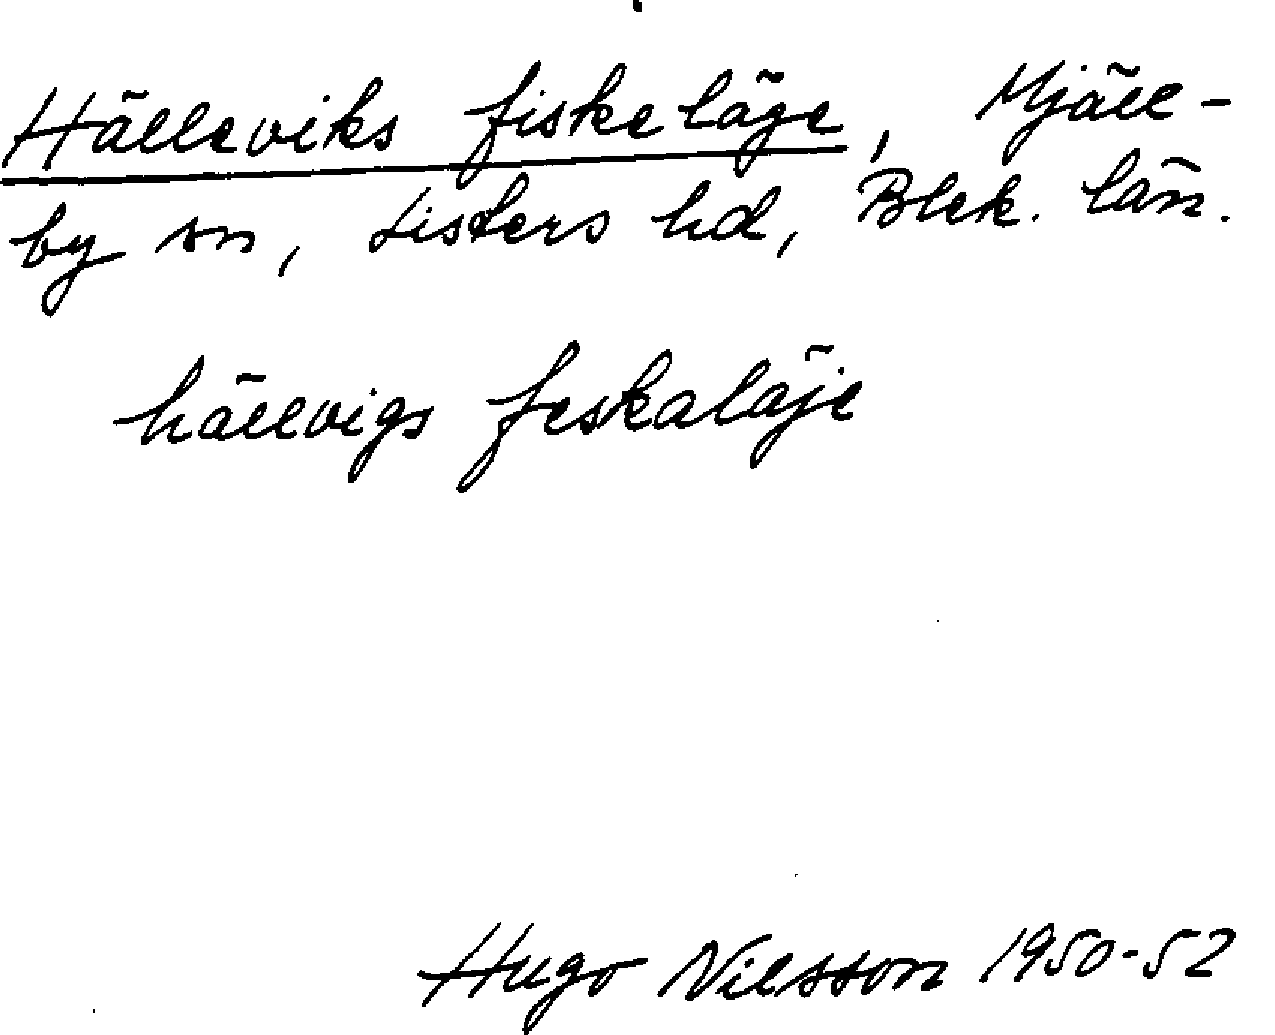 Hälleviks fiskeläge, Mjäll-
by sn, Listers hd, Blek. län.
hällvigs feskaläje
Hugo Nilsson 1950-52